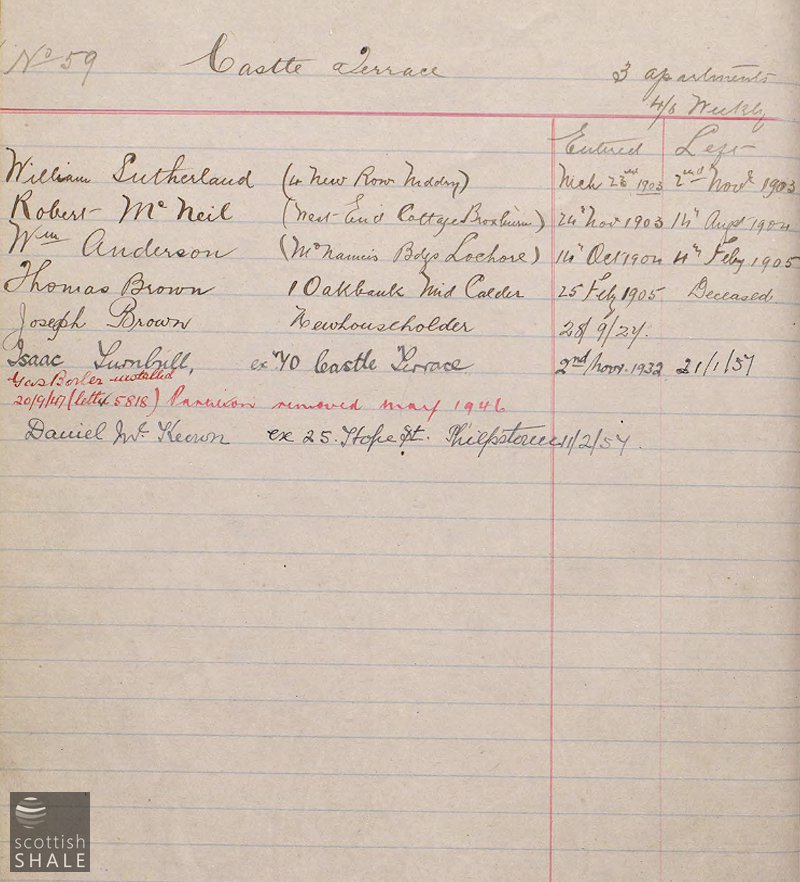 No 59 Castle Terrace 3 apartments
4/6 Weekly
Entered Left
William Sutherland (4 New Row Niddry) Mch 23rd 1903 2nd Novr 1903
Robert McNeil (West End Cottage Broxburn) 24th Nov 1903 1th Augst 1904
Wm Anderson (McNamis Bdgs Lochore) 14th Oct 1904 4th Feby 1905
Thomas Brown 1 Oakbank Mid Calder 25 Feby 1905 Deceased
Joseph Brown Newhouseholder 28/9/27.
Isaac Turnbull, ex 70 Castle Terrace 2nd Novr. 1932 21/1/57
Gas Boiler installed
20/9/47 (letter 5818) Partition removed may 1946
Daniel Mc Keown ex 25. Hope St. Philpstoun 11/2/57.
scottish
SHALE